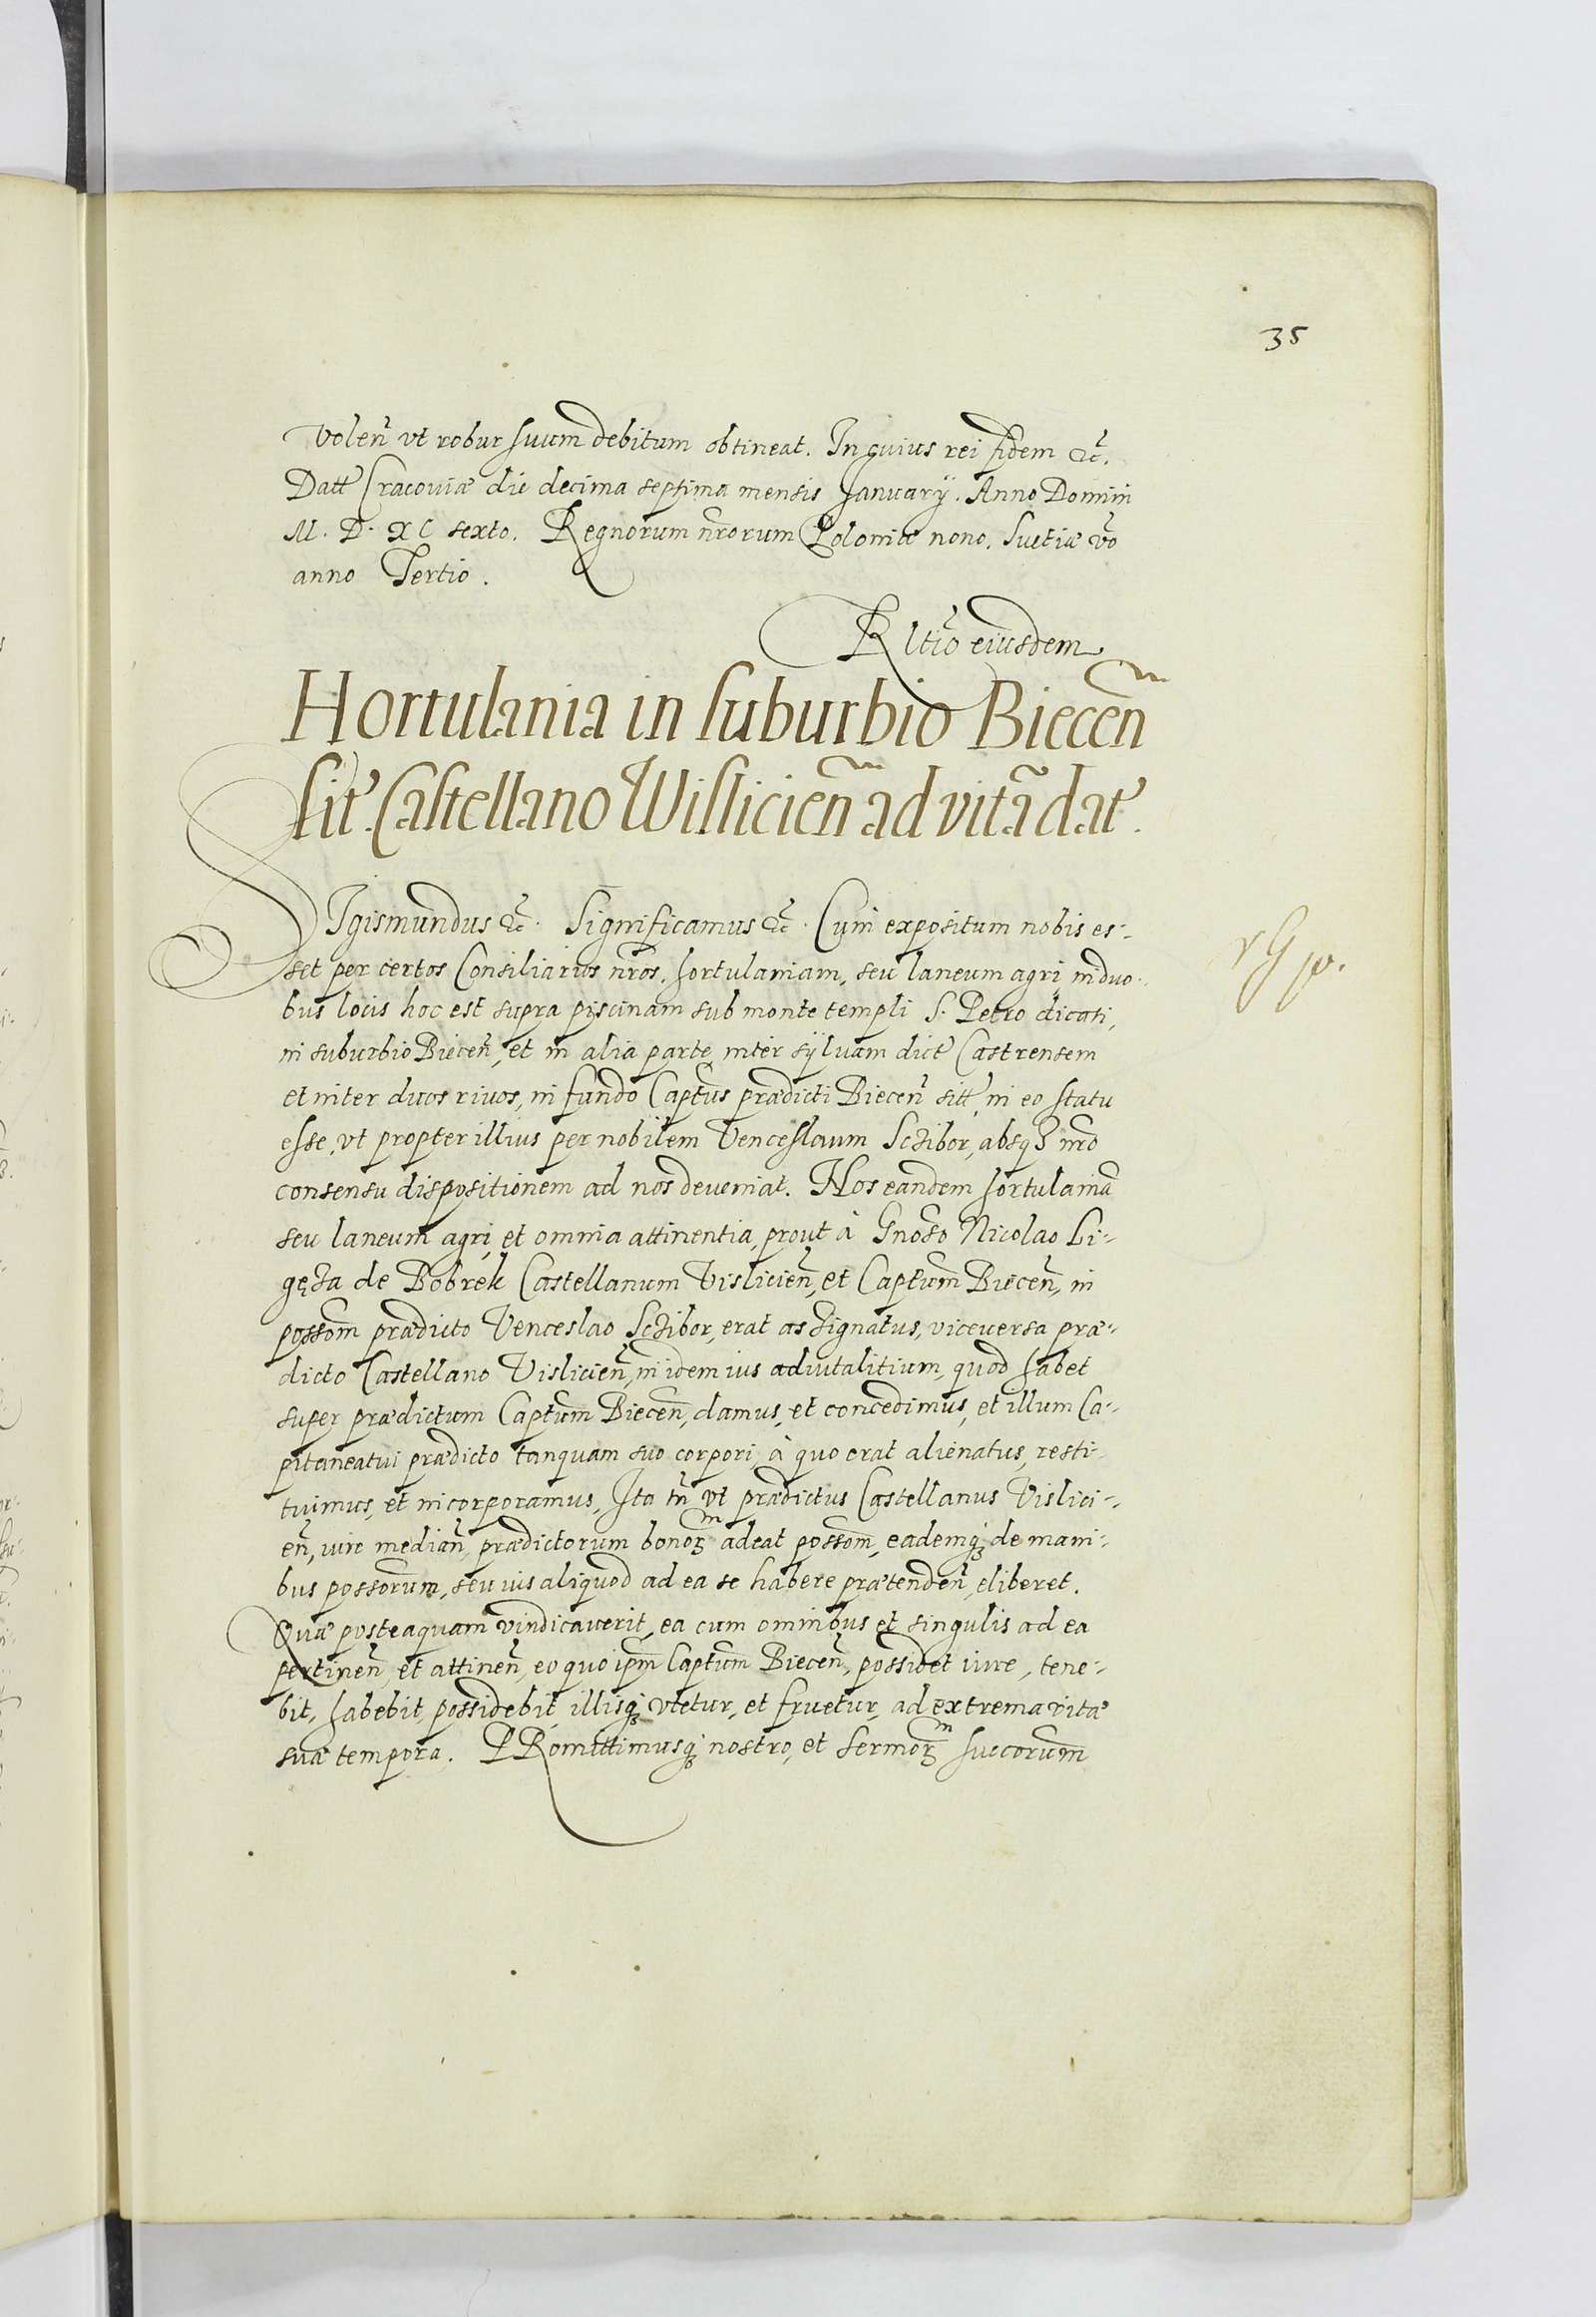 35
Volen̄ vt robur suum debitum obtineat. In cuius rei fidem &c̄.
Datt Cracoviæ die decima septima mensis Januarÿ. Anno Domini
M. D. XC sexto. Regnorum nr̄orum Poloniæ nono. Suetiæ vō
anno Tertio.
Rltīo eiusdem
Hortulania in suburbio Biecen̄
sit. Castellano Wislicien̄ ad vitã dat.
SIgismundus &c̄. Significamus &c̄. Cum expositum nobis es-
set per certos Consiliarios nr̄os, hortulaniam, seu laneum agri, in duo-
bus locis hoc est supra piscinam sub monte templi S. Petro dicati,
in suburbio Biecen̄, et in alia parte, inter sÿluam dict Castrensem
et inter duos riuos, in fundo Capt̄us prædicti Biecen̄ sitt, in eo statu
esse, vt propter illius per nobilem Venceslaum Sczibor, absq3 nr̄o
consensu dispositionem ad nos deueniat. Nos eandem hortulaniã
seu laneum agri, et omnia attinentia, prout à Gnōso Nicolao Li-
gęza de Bobrek Castellanum Vislicien̄, et Capt̄um Biecen̄, in
possom̄ prædicto Venceslao Sczibor, erat assignatus, viceuersa præ-
dicto Castellano Vislicien̄, in idem ius aduitalitium, quod habet
super prædictum Capt̄um Biecen̄, damus, et concedimus, et illum Ca-
pitaneatui prædicto tanquam suo corpori, à quo erat alienatus, resti-
tuimus, et incorporamus, Ita tn̄ vt prædictus Castellanus Vislici-
en̄, iure median̄, prædictorum bonoꝝ adeat possom̄, eademq3 de mani-
bus possorum̄, seu ius aliquod ad ea se habere prætenden̄, eliberet.
Quæ posteaquam vindicauerit, ea cum omnibus et singulis ad ea
pertinen̄, et attinen̄, eo quo ip̄m Capt̄um Biecen̄, possidet iure, tene-
bit, habebit, possidebit, illisq3 vtetur, et fruetur, ad extrema vitæ
suæ tempora. PRomittimusq3 nostro, et Sermoꝝ succorum̄